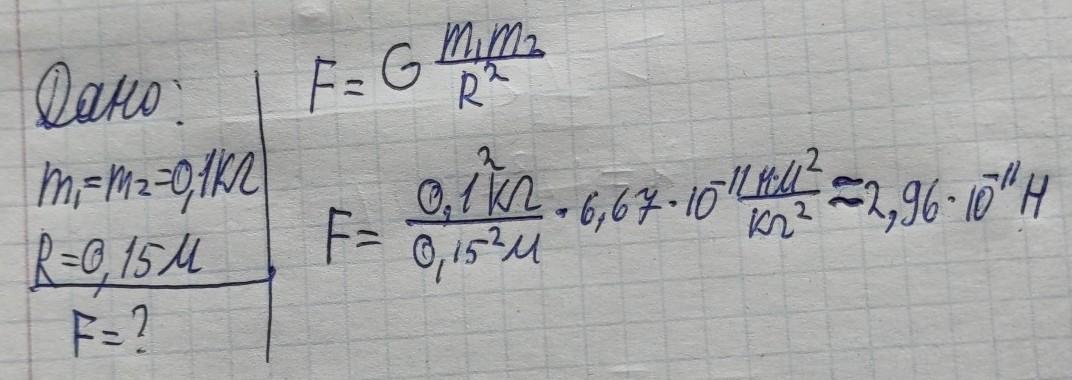 Дано:
m₁=m₂=0,1кг
R=0,15м
F=?
F= G m₁m₂/R²
F= 0,1²кг/0,15²м · 6,67·10⁻¹¹ Н·м²/кг² ≈2,96·10⁻¹¹Н